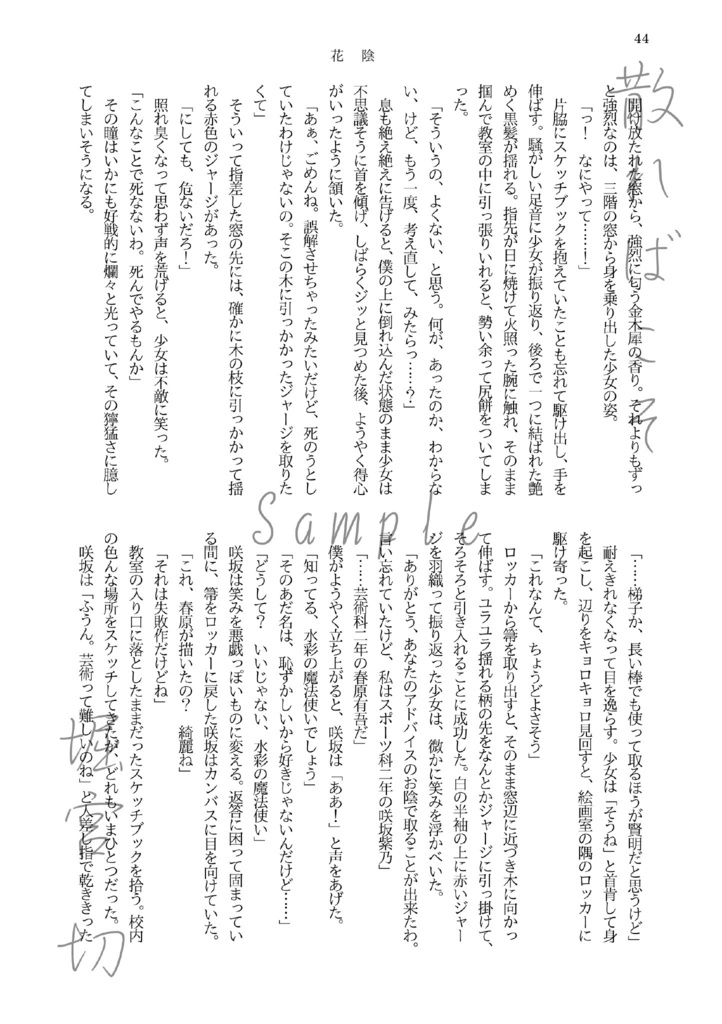 44
花陰
開け放たれた窓から、強烈に匂う金木犀の香り。それよりもずっ
と強烈なのは、三階の窓から身を乗り出した少女の姿。
「っ！　なにやって……！」
片脇にスケッチブックを抱えていたことも忘れて駆け出し、手を
伸ばす。騒がしい足音に少女が振り返り、後ろで一つに結ばれた艶
めく黒髪が揺れる。指先が日に焼けて火照った腕に触れ、そのまま
掴んで教室の中に引っ張りいれると、勢い余って尻餅をついてしま
った。
「そういうの、よくない、と思う。何が、あったのか、わからな
い、けど、もう一度、考え直して、みたらっ……？」
息も絶え絶えに告げると、僕の上に倒れ込んだ状態のまま少女は
不思議そうに首を傾げ、しばらくジッと見つめた後、ようやく得心
がいったように頷いた。
「あぁ、ごめんね。誤解させちゃったみたいだけど、死のうとし
ていたわけじゃないの。そこの木に引っかかったジャージを取りた
くて」
そういって指差した窓の先には、確かに木の枝に引っかかって揺
れる赤色のジャージがあった。
「にしても、危ないだろ！」
照れ臭くなって思わず声を荒げると、少女は不敵に笑った。
「こんなことで死なないわ。死んでやるもんか」
その瞳はいかにも好戦的に爛々と光っていて、その獰猛さに臆し
てしまいそうになる。
「……梯子か、長い棒でも使って取るほうが賢明だと思うけど」
耐えきれなくなって目を逸らす。少女は「そうね」と首肯して身
を起こし、辺りをキョロキョロ見回すと、絵画室の隅のロッカーに
駆け寄った。
「これなんて、ちょうどよさそう」
ロッカーから箒を取り出すと、そのまま窓辺に近づき木に向かっ
て伸ばす。ユラユラ揺れる柄の先をなんとかジャージに引っ掛けて、
そろそろと引き入れることに成功した。白の半袖の上に赤いジャー
ジを羽織って振り返った少女は、微かに笑みを浮かべいた。
「ありがとう、あなたのアドバイスのお陰で取ることが出来たわ。
言い忘れていたけど、私はスポーツ科二年の咲坂紫乃」
「……芸術科二年の春原有吾だ」
僕がようやく立ち上がると、咲坂は「ああ！」と声をあげた。
「知ってる、水彩の魔法使いでしょう」
「そのあだ名は、恥ずかしいから好きじゃないんだけど……」
「どうして？　いいじゃない、水彩の魔法使い」
咲坂は笑みを悪戯っぽいものに変える。返答に困って固まってい
る間に、箒をロッカーに戻した咲坂はカンバスに目を向けていた。
「これ、春原が描いたの？　綺麗ね」
「それは失敗作だけどね」
教室の入り口に落としたままだったスケッチブックを拾う。校内
の色んな場所をスケッチしてきたが、どれもいまひとつだった。
咲坂は「ふうん。芸術って難しいのね」と人差し指で乾ききった
散ればこそ
Sample
堀宮切